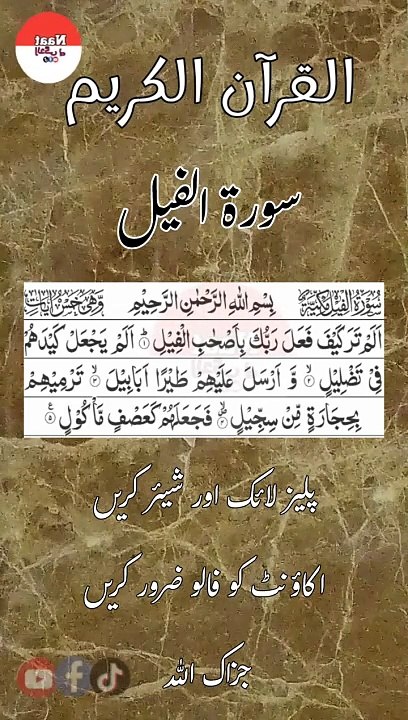 Naat
القرآن الكريم
سورۃ الفیل
سُوْرَةُ الْفِيْلِ مَكِّيَّةٌ بِسْمِ اللّٰهِ الرَّحْمٰنِ الرَّحِيْمِ وَّهِيَ خَمْسُ اٰيَاتٍ
اَلَمْ تَرَ كَيْفَ فَعَلَ رَبُّكَ بِاَصْحٰبِ الْفِيْلِ ۱ اَلَمْ يَجْعَلْ كَيْدَهُمْ
فِيْ تَضْلِيْلٍ ۲ وَّ اَرْسَلَ عَلَيْهِمْ طَيْرًا اَبَابِيْلَ ۳ تَرْمِيْهِمْ
بِحِجَارَةٍ مِّنْ سِجِّيْلٍ ۴ فَجَعَلَهُمْ كَعَصْفٍ مَّاْكُوْلٍ ۵
پلیز لائک اور شیئر کریں
اکاؤنٹ کو فالو ضرور کریں
جزاک اللہ